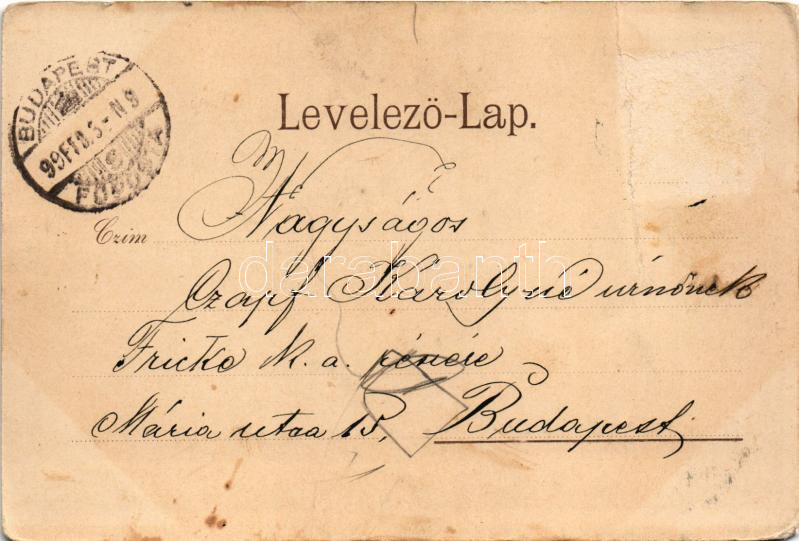 BUDAPEST
99 FEB. 5 - N 9
FŐPOSTA
Levelező-Lap.
Czim
Nagyságos
Czapf Károlyné úrnőnek
Fricke k. a. részére
Mária utca 15,
Budapest
darabanth